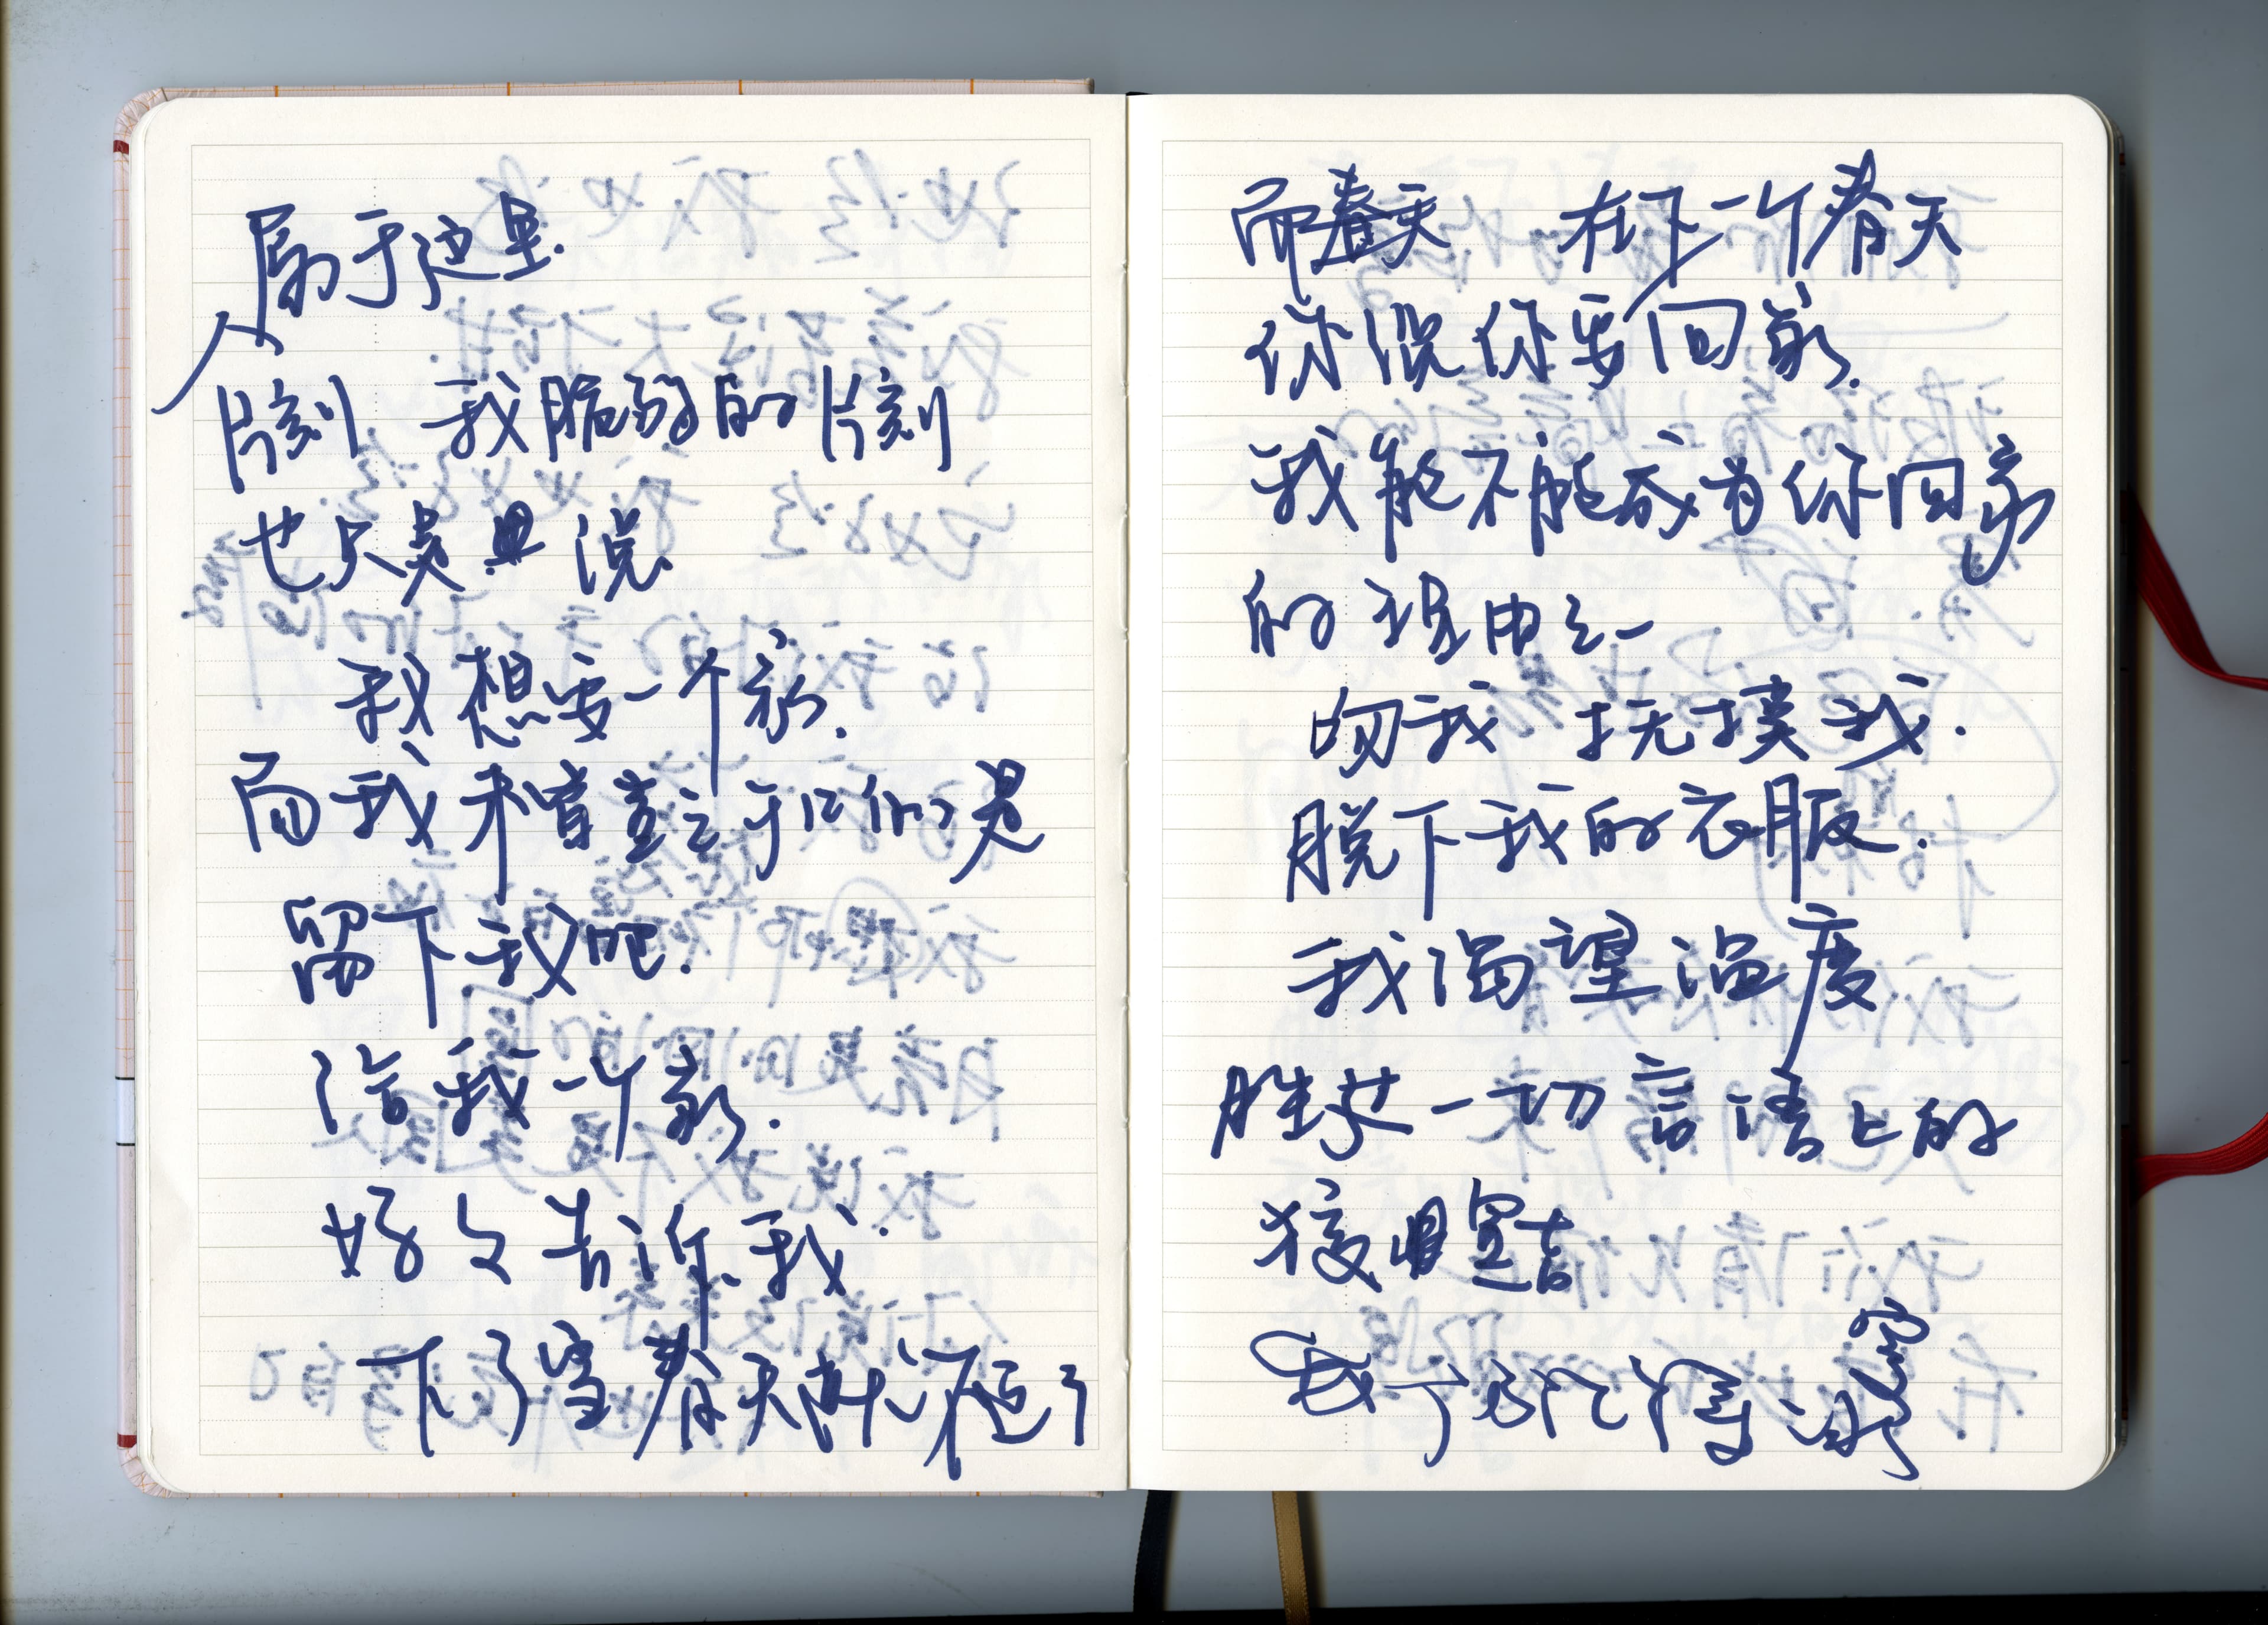 属于这里.
片刻 我脆弱的片刻
也只卖 说
我想要一个家.
而我未曾宣之于口的是
留下我吧.
给我一个家.
好々告诉我
下了雪春天就不远了
而春天 在下一个春天
你说你要回家.
我能不能成为你回家
的理由之一
吻我 抚摸我.
脱下我的衣服.
我渴望温度
胜过一切言语上的
狡黠